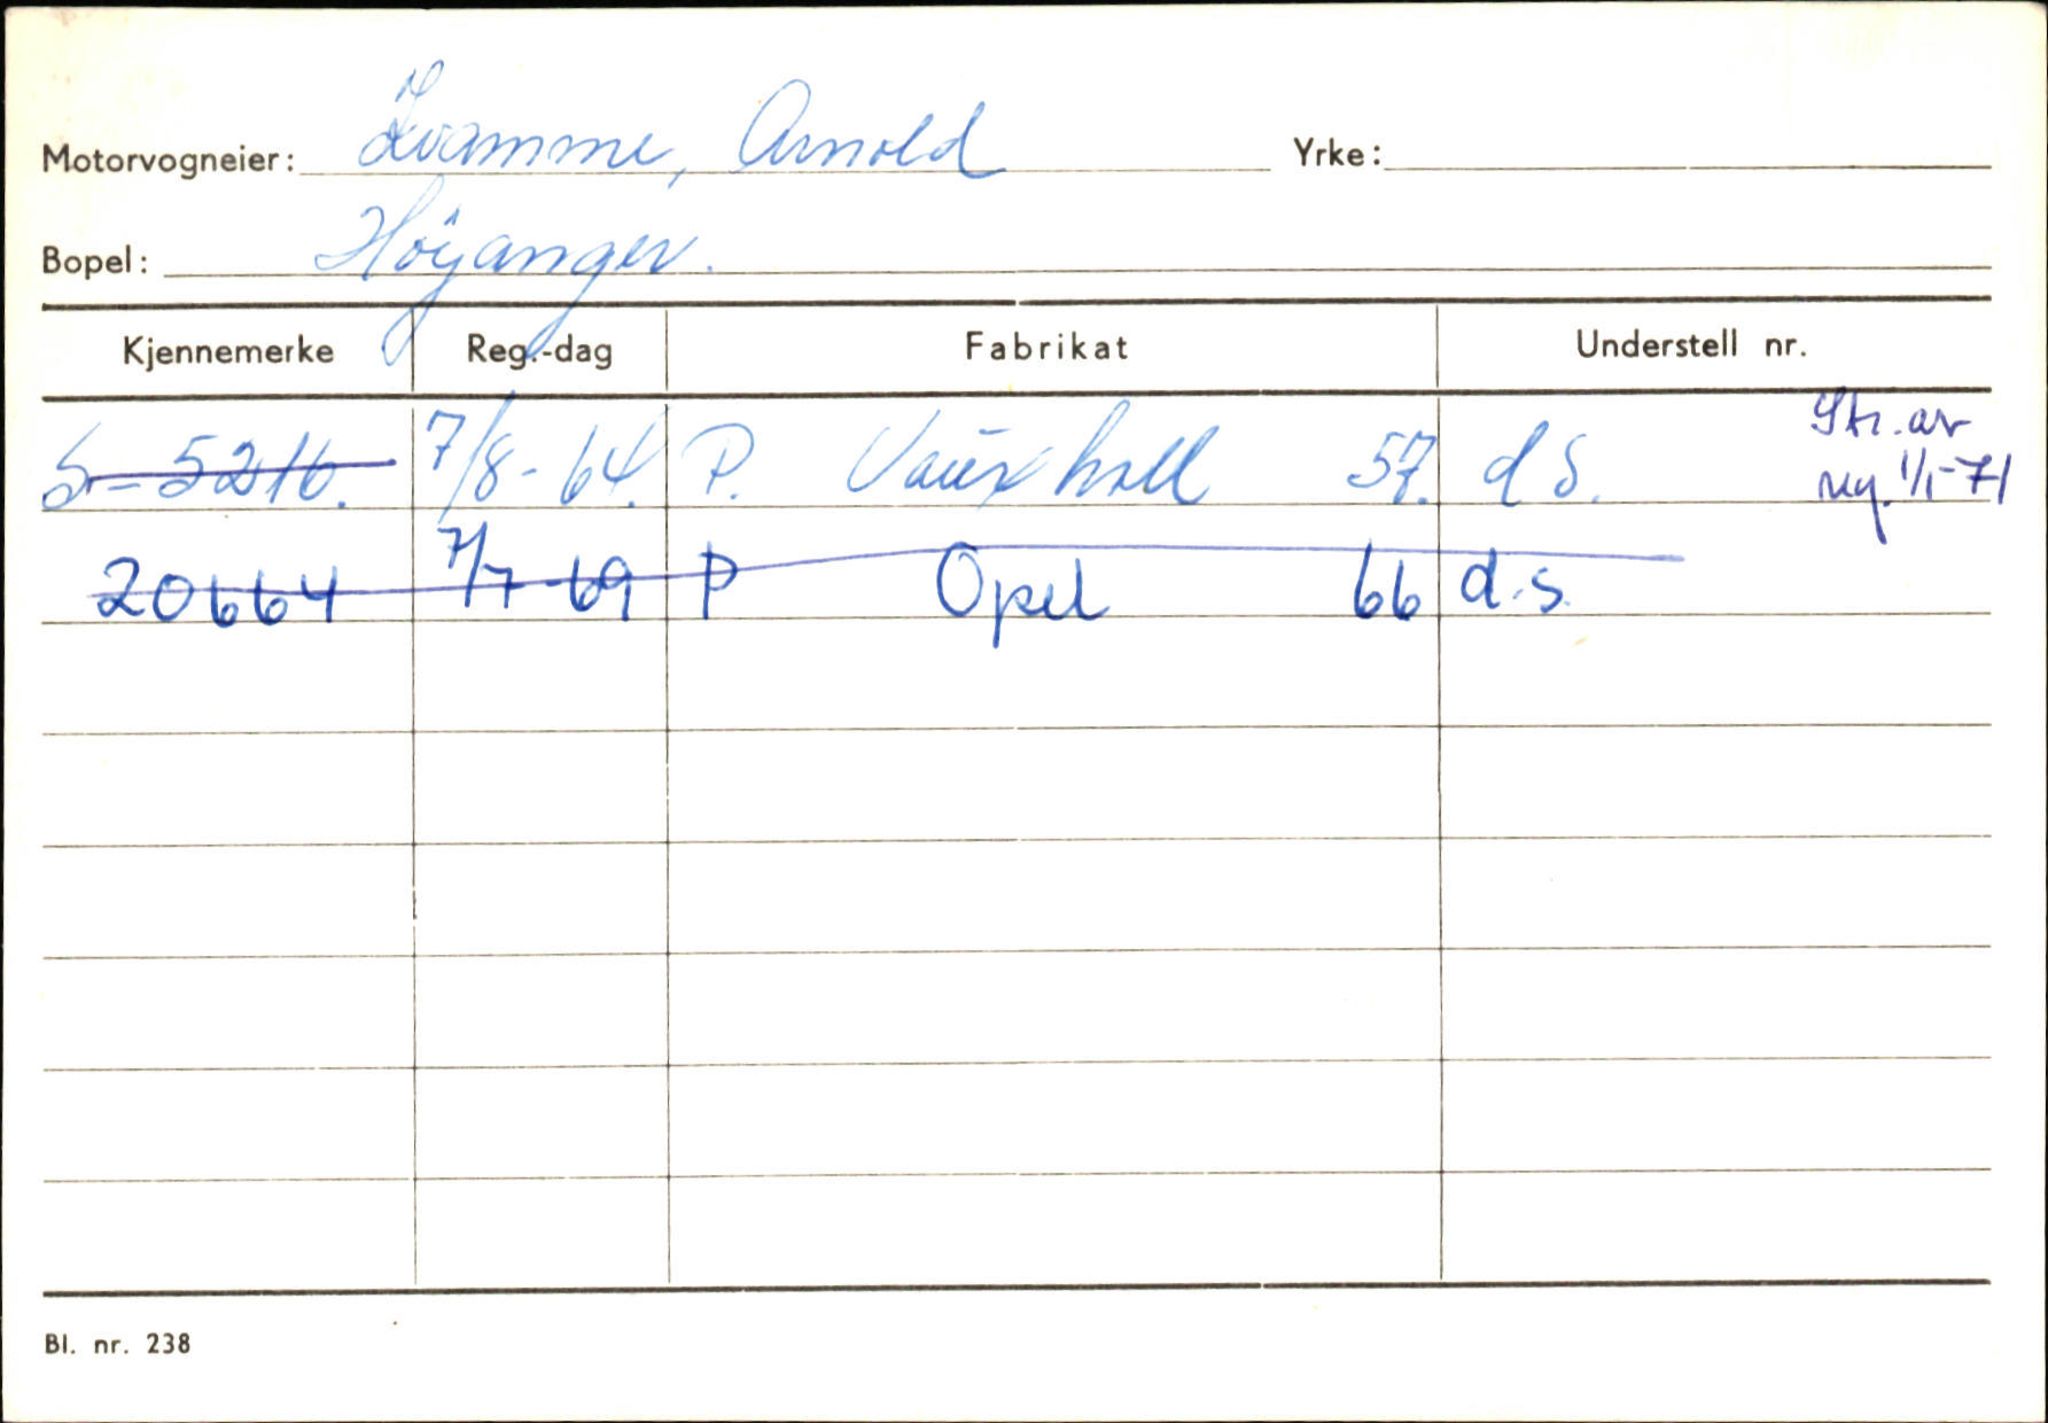 Motorvogneier: Kvamme, Arnold Yrke:
Bopel: Höyanger.
Kjennemerke Reg.-dag Fabrikat Understell nr.
S-5216. 7/8-64. P. Vauxhall 57. d S. Str. av
reg. 1/1-71
20664 7/7-69 P Opel 66 d.s.
Bl. nr. 238